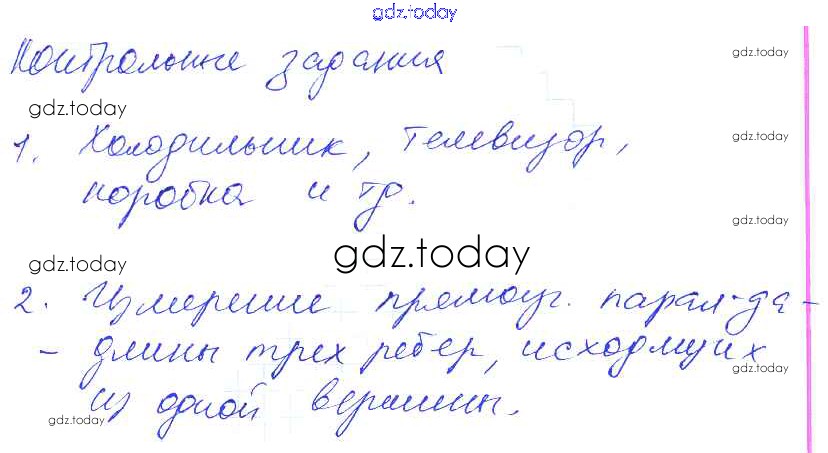 gdz.today
Контрольные задания
gdz.today
gdz.today
1. Холодильник, телевизор,
gdz.today
коробка и тд.
gdz.today
gdz.today
gdz.today
gdz.today
2. Измерение прямоуг. парал-да -
- длины трех ребер, исходящих
gdz.today
из одной вершины.
gdz.today